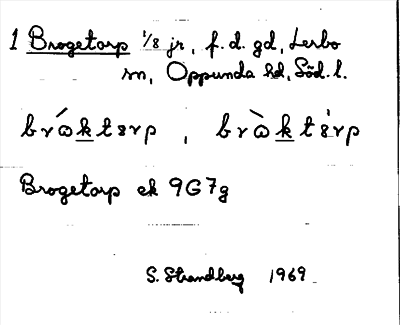 1 Brogetorp 1/8 jr, f. d. gd, Lerbo
sn, Oppunda hd, Söd. l.
brωktɜrp, brωktɜrp
Brogetorp ek 9G7g
S. Strandberg 1969